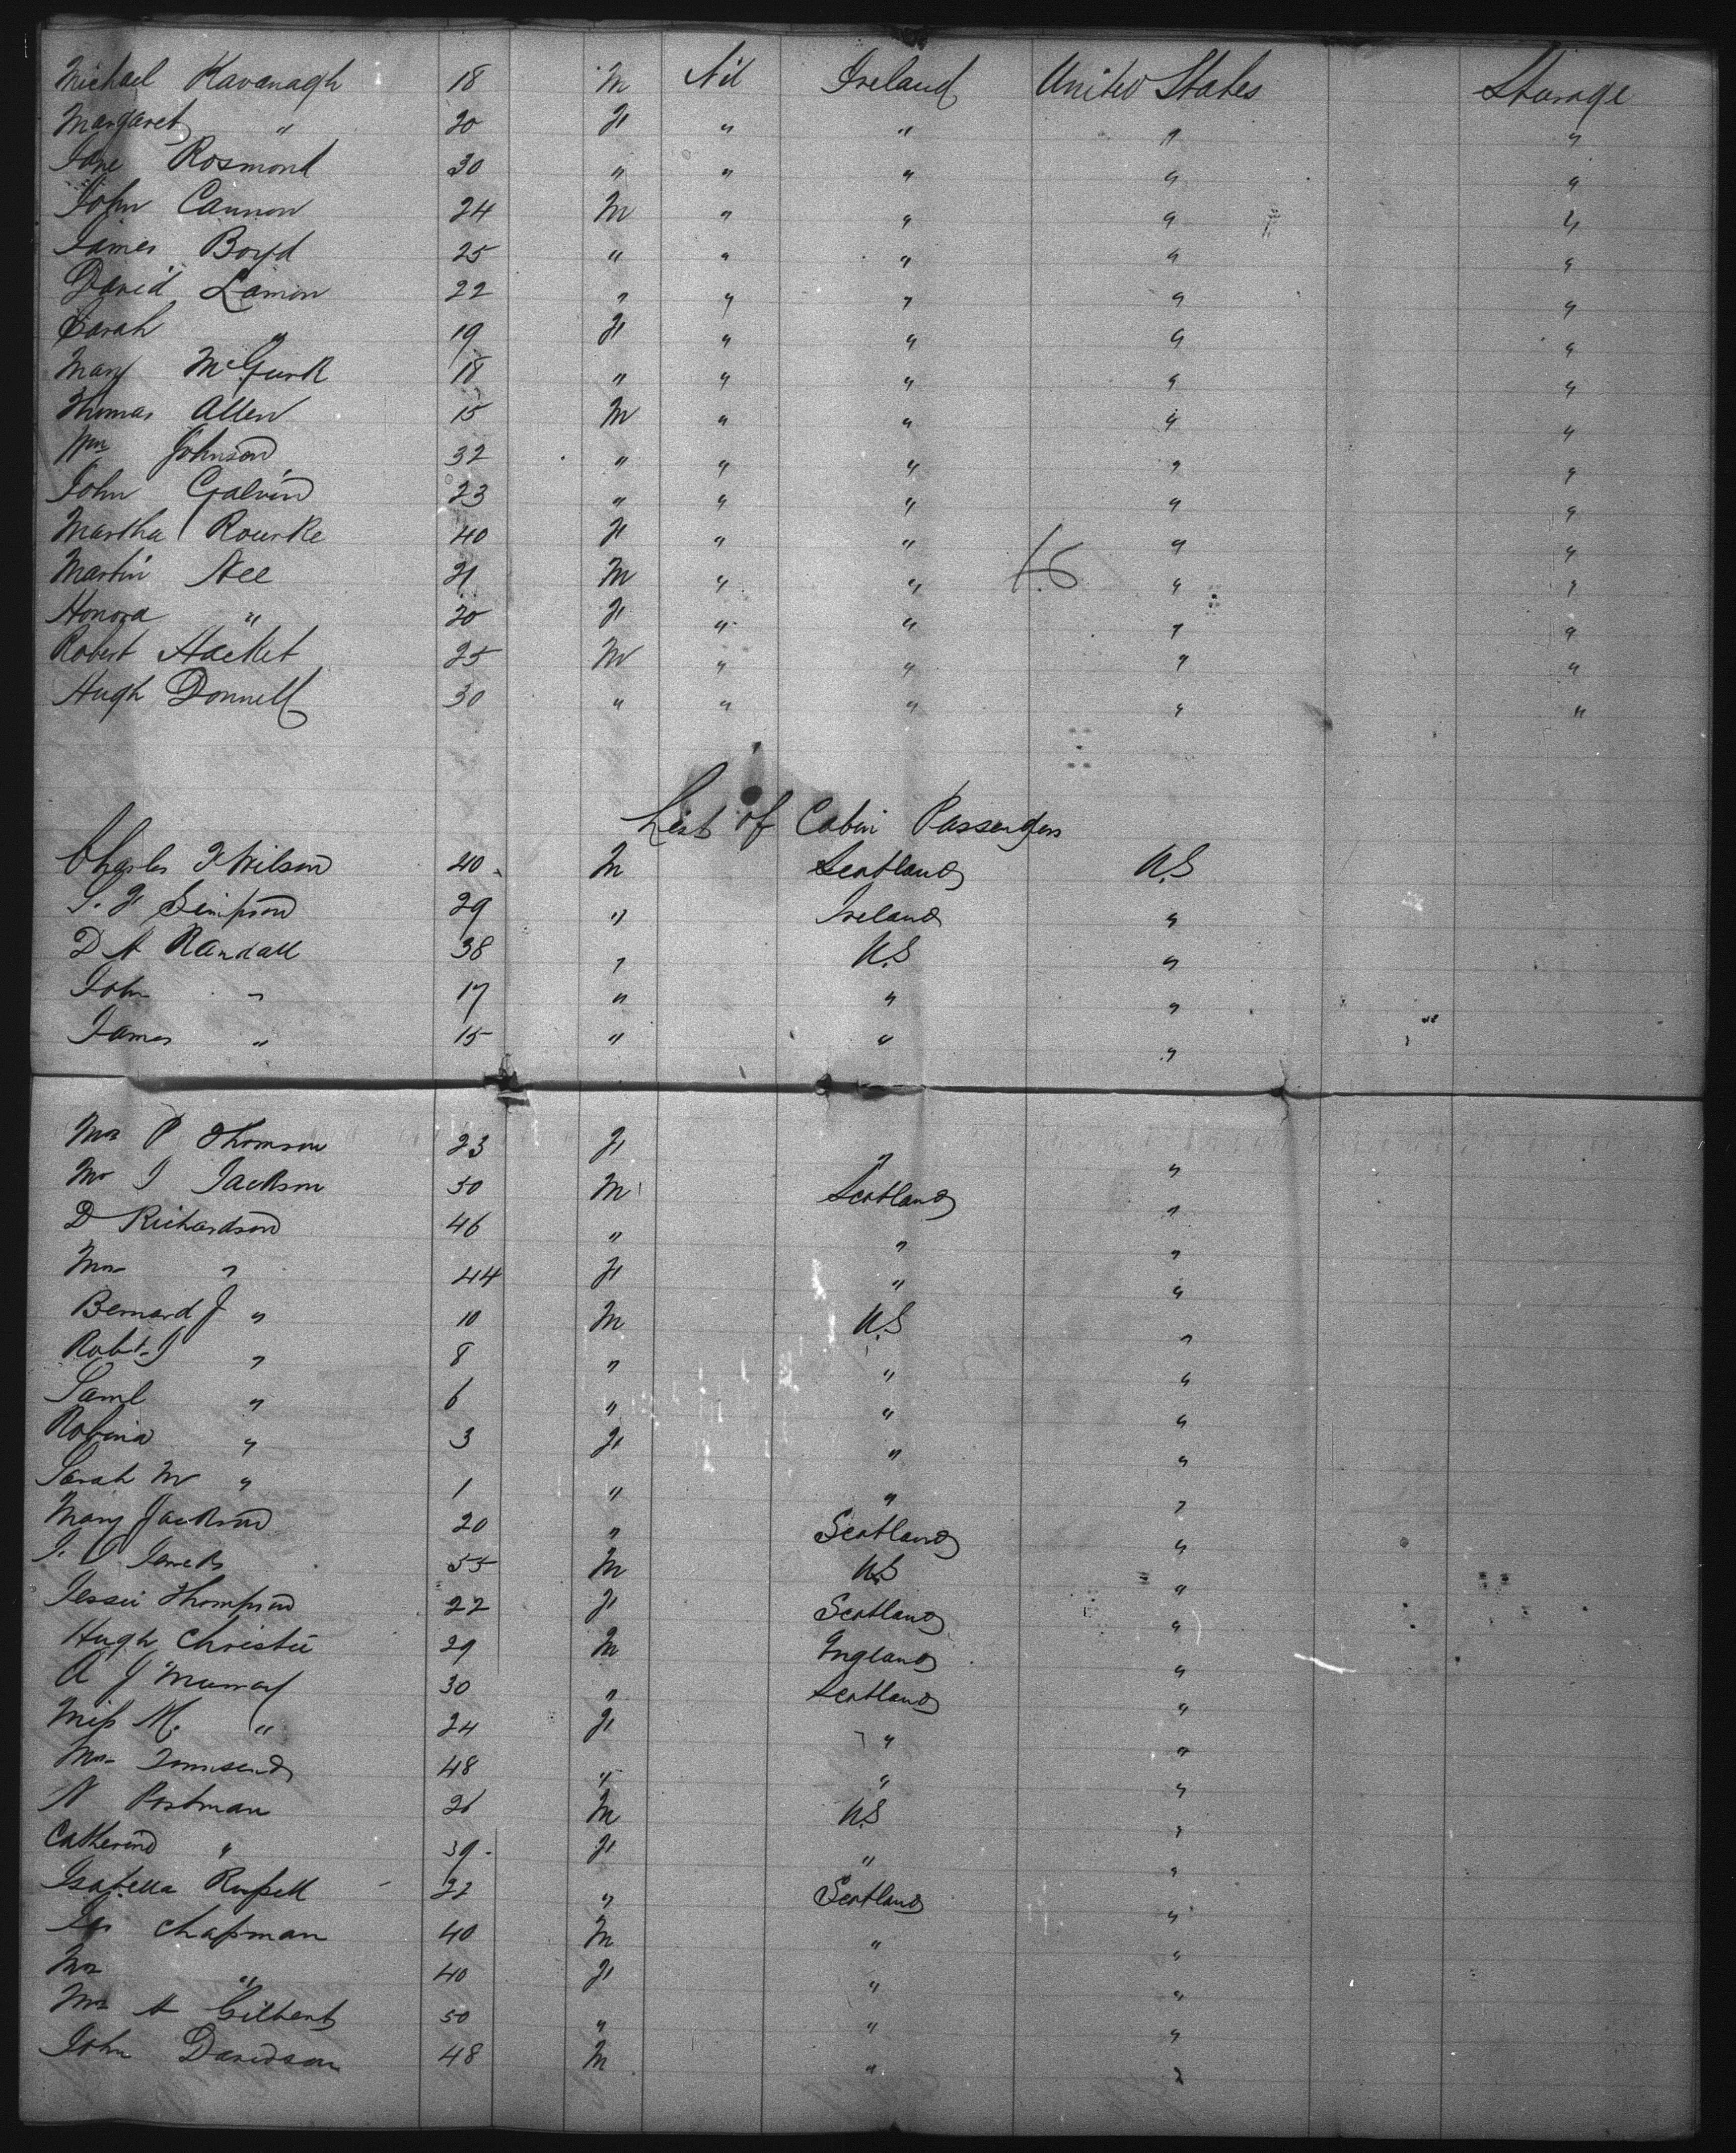 Michael Kavanagh 18 M Nil Ireland United States Steerage
Margaret " 20 F " " " "
Jane Rosmond 30 " " " " "
John Cannon 24 M " " " "
James Boyd 25 " " " " "
David Lamon 22 " " " " "
Sarah " 19 F " " " "
Mary McGurk 18 " " " " "
Thomas Allen 15 M " " " "
Wm Johnson 32 " " " " "
John Galvin 23 " " " " "
Martha Rourke 40 F " " " "
Martin Nee 21 M " " " "
Honora " 20 F " " " "
Robert Hacket 25 M " " " "
Hugh Donnell 30 " " " " "
List of Cabin Passengers
Charles F Wilson 40 M Scotland U.S
S. F Simpson 29 " Ireland "
D A Randall 38 " U.S "
John " 17 " " "
James " 15 " " "
Mrs P Thomson 23 F " "
Mr J Jackson 50 M Scotland "
D Richardson 46 " " "
Mrs " 44 F " "
Bernard J " 10 M U.S "
Robt J " 8 " " "
Saml " 6 " " "
Robina " 3 F " "
Sarah M " 1 " " "
Mary Jackson 20 " Scotland "
55 M U.S "
Jessie Thompson 22 F Scotland "
Hugh Christie 29 M England "
A J Murray 30 " Scotland "
Miss M. " 24 F " "
Mrs Townsend 48 " " "
N Portman 26 M U.S "
Catherine " 39 F " "
Isabella Russell 22 " Scotland "
Jas Chapman 40 M " "
Mrs " 40 F " "
Mrs A Gilbert 50 " " "
John Davidson 48 M " "